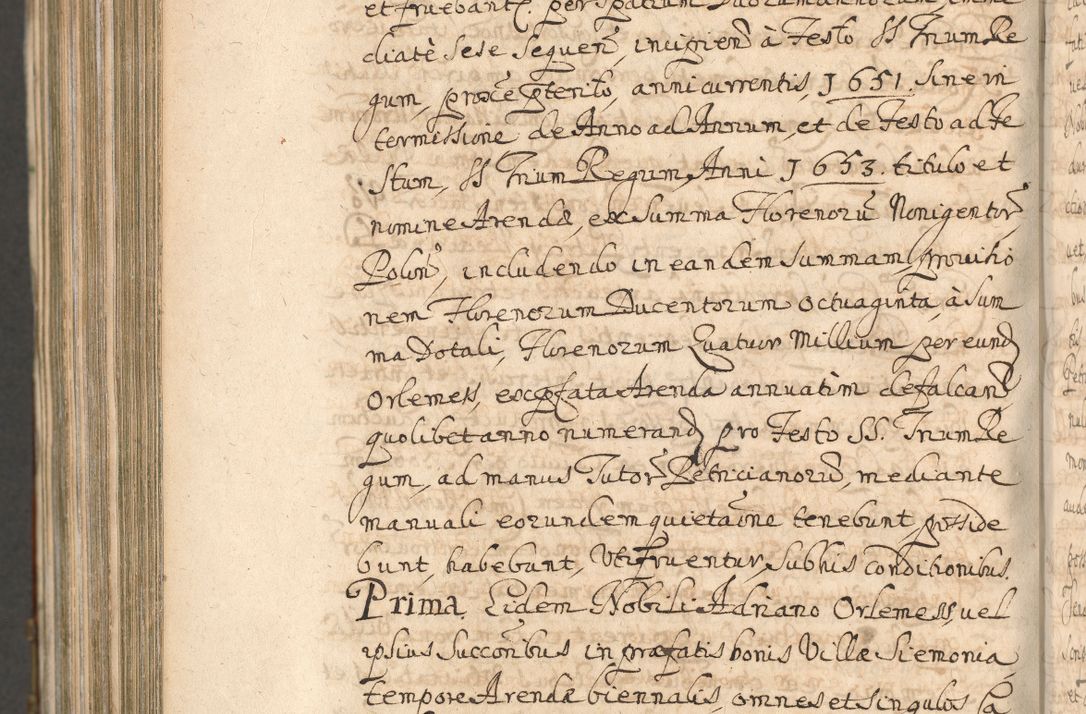 et fruebantr. per spatium duorum annorum imme
diatè sese sequen, incipien à Festo SS Trium Re
gum, proxe pterito, anni currentis, 1651. sine in
termissione de Anno ad Annum, et de Festo ad Fe
stum, SS Trium Regum, Anni 1653. titulo et
nomine Arendæ, ex summa Florenorũ Nonigentor
Polon, includendo in eandem summam, provisio
nem Florenorum Ducentorum octuaginta, à sum
ma Dotali, Florenorum Quatuor Millium per eund
Orlemess, ex pfata Arenda annuatim defalcand,
quolibet anno numerand pro Festo SS. Trium Re
gum, ad manus Tutor Petricianorũ, mediante
manuali eorundem quietaõne tenebunt, posside
bunt, habebunt, Utifruentur, sub his conditionibus.
Prima. Eidem Nobili Adriano Orlemess, vel
ipsius Succoribus in præfatis bonis Villæ Siemonia,
tempore Arendæ biennalis, omnes et singulos la